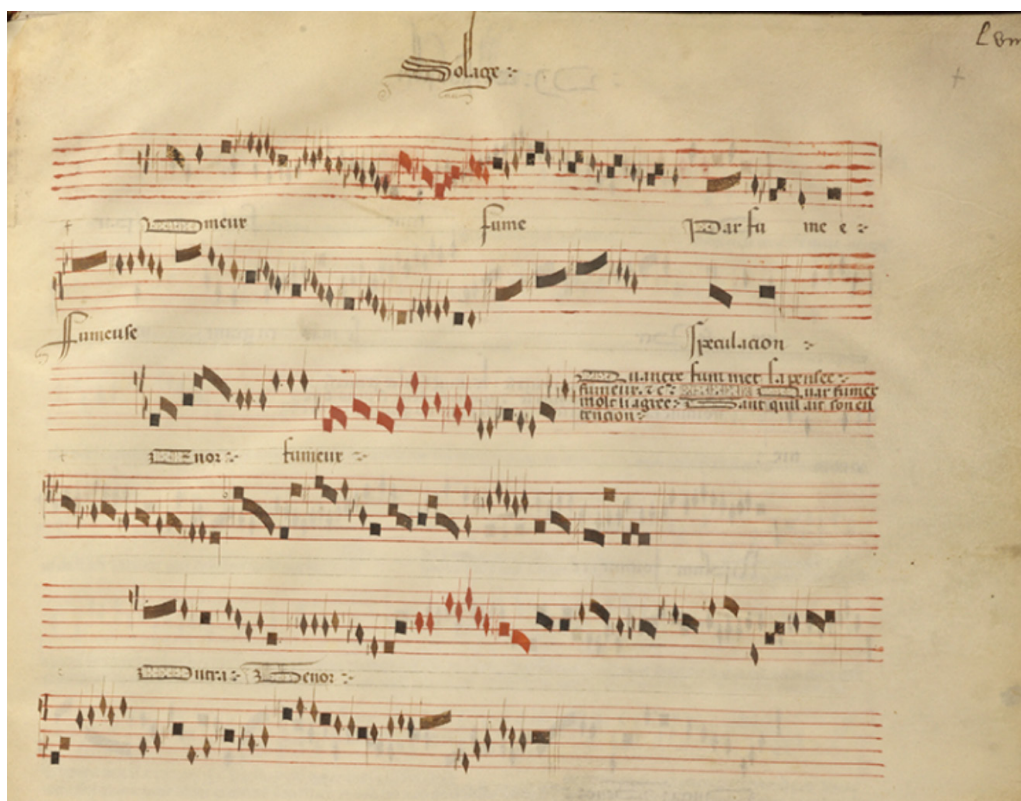 Solage :
Fumeur fume Par fu me e :
fumeuse speculacion :
Quantre fum met sa pensee :
fumeur z c : Quar fumer
molt li agree : Tant quil ait son en
tencion :
Tenor : fumeur :
Contra : Tenor :